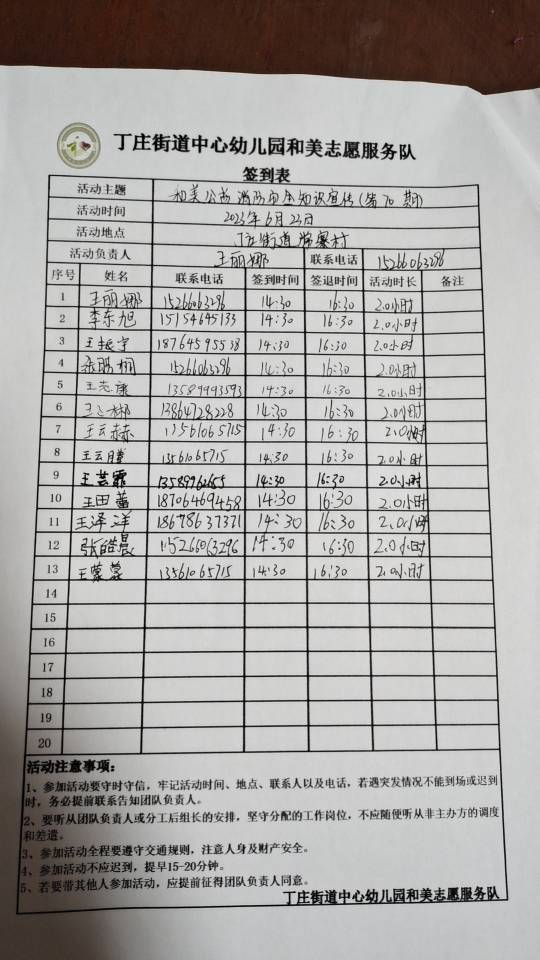 丁庄街道中心幼儿园和美志愿服务队
签到表
活动主题 和美公益 消防安全知识宣传(第70期)
活动时间 2023年6月23日
活动地点 丁庄街道 村
活动负责人 王丽娜 联系电话 15266063296
序号 姓名 联系电话 签到时间 签退时间 活动时长 备注
1 王丽娜 15266063296 14:30 16:30 2.0小时
2 李东旭 15154645133 14:30 16:30 2.0小时
3 王振宇 18764595538 14:30 16:30 2.0小时
4 15266063296 14:30 16:30 2.0小时
5 王志康 13589993593 14:30 16:30 2.0小时
6 13864728228 14:30 16:30 2.0小时
7 王云赫 13561065715 14:30 16:30 2.0小时
8 王云腾 13561065715 14:30 16:30 2.0小时
9 王芸霏 13589962655 14:30 16:30 2.0小时
10 王田蕾 18706469458 14:30 16:30 2.0小时
11 王泽洋 18678637371 14:30 16:30 2.0小时
12 张皓晨 15266063296 14:30 16:30 2.0小时
13 王蒙蒙 13561065715 14:30 16:30 2.0小时
14
15
16
17
18
19
20
活动注意事项:
1、参加活动要守时守信,牢记活动时间、地点、联系人以及电话,若遇突发情况不能到场或迟到
时,务必提前联系告知团队负责人。
2、要听从团队负责人或分工后组长的安排,坚守分配的工作岗位,不应随便听从非主办方的调度
和差遣。
3、参加活动全程要遵守交通规则,注意人身及财产安全。
4、参加活动不应迟到,提早15-20分钟。
5、若要带其他人参加活动,应提前征得团队负责人同意。
丁庄街道中心幼儿园和美志愿服务队